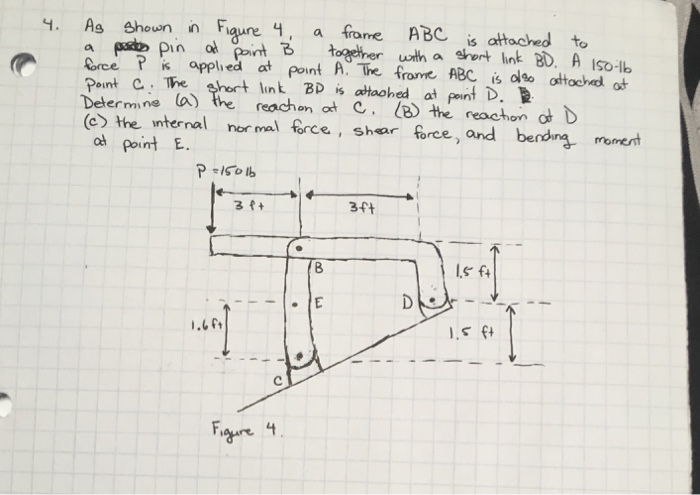 4. As shown in Figure 4, a frame ABC is attached to
a pin at point B together with a short link BD. A 150-lb
force P is applied at point A. The frame ABC is also attached at
Point C. The short link BD is attached at point D.
Determine (a) the reaction at C. (B) the reaction at D
(c) the internal normal force, shear force, and bending moment
at point E.
P = 150 lb
3 ft
3ft
B
1.5 ft
E
D
1.6 ft
1.5 ft
C
Figure 4.